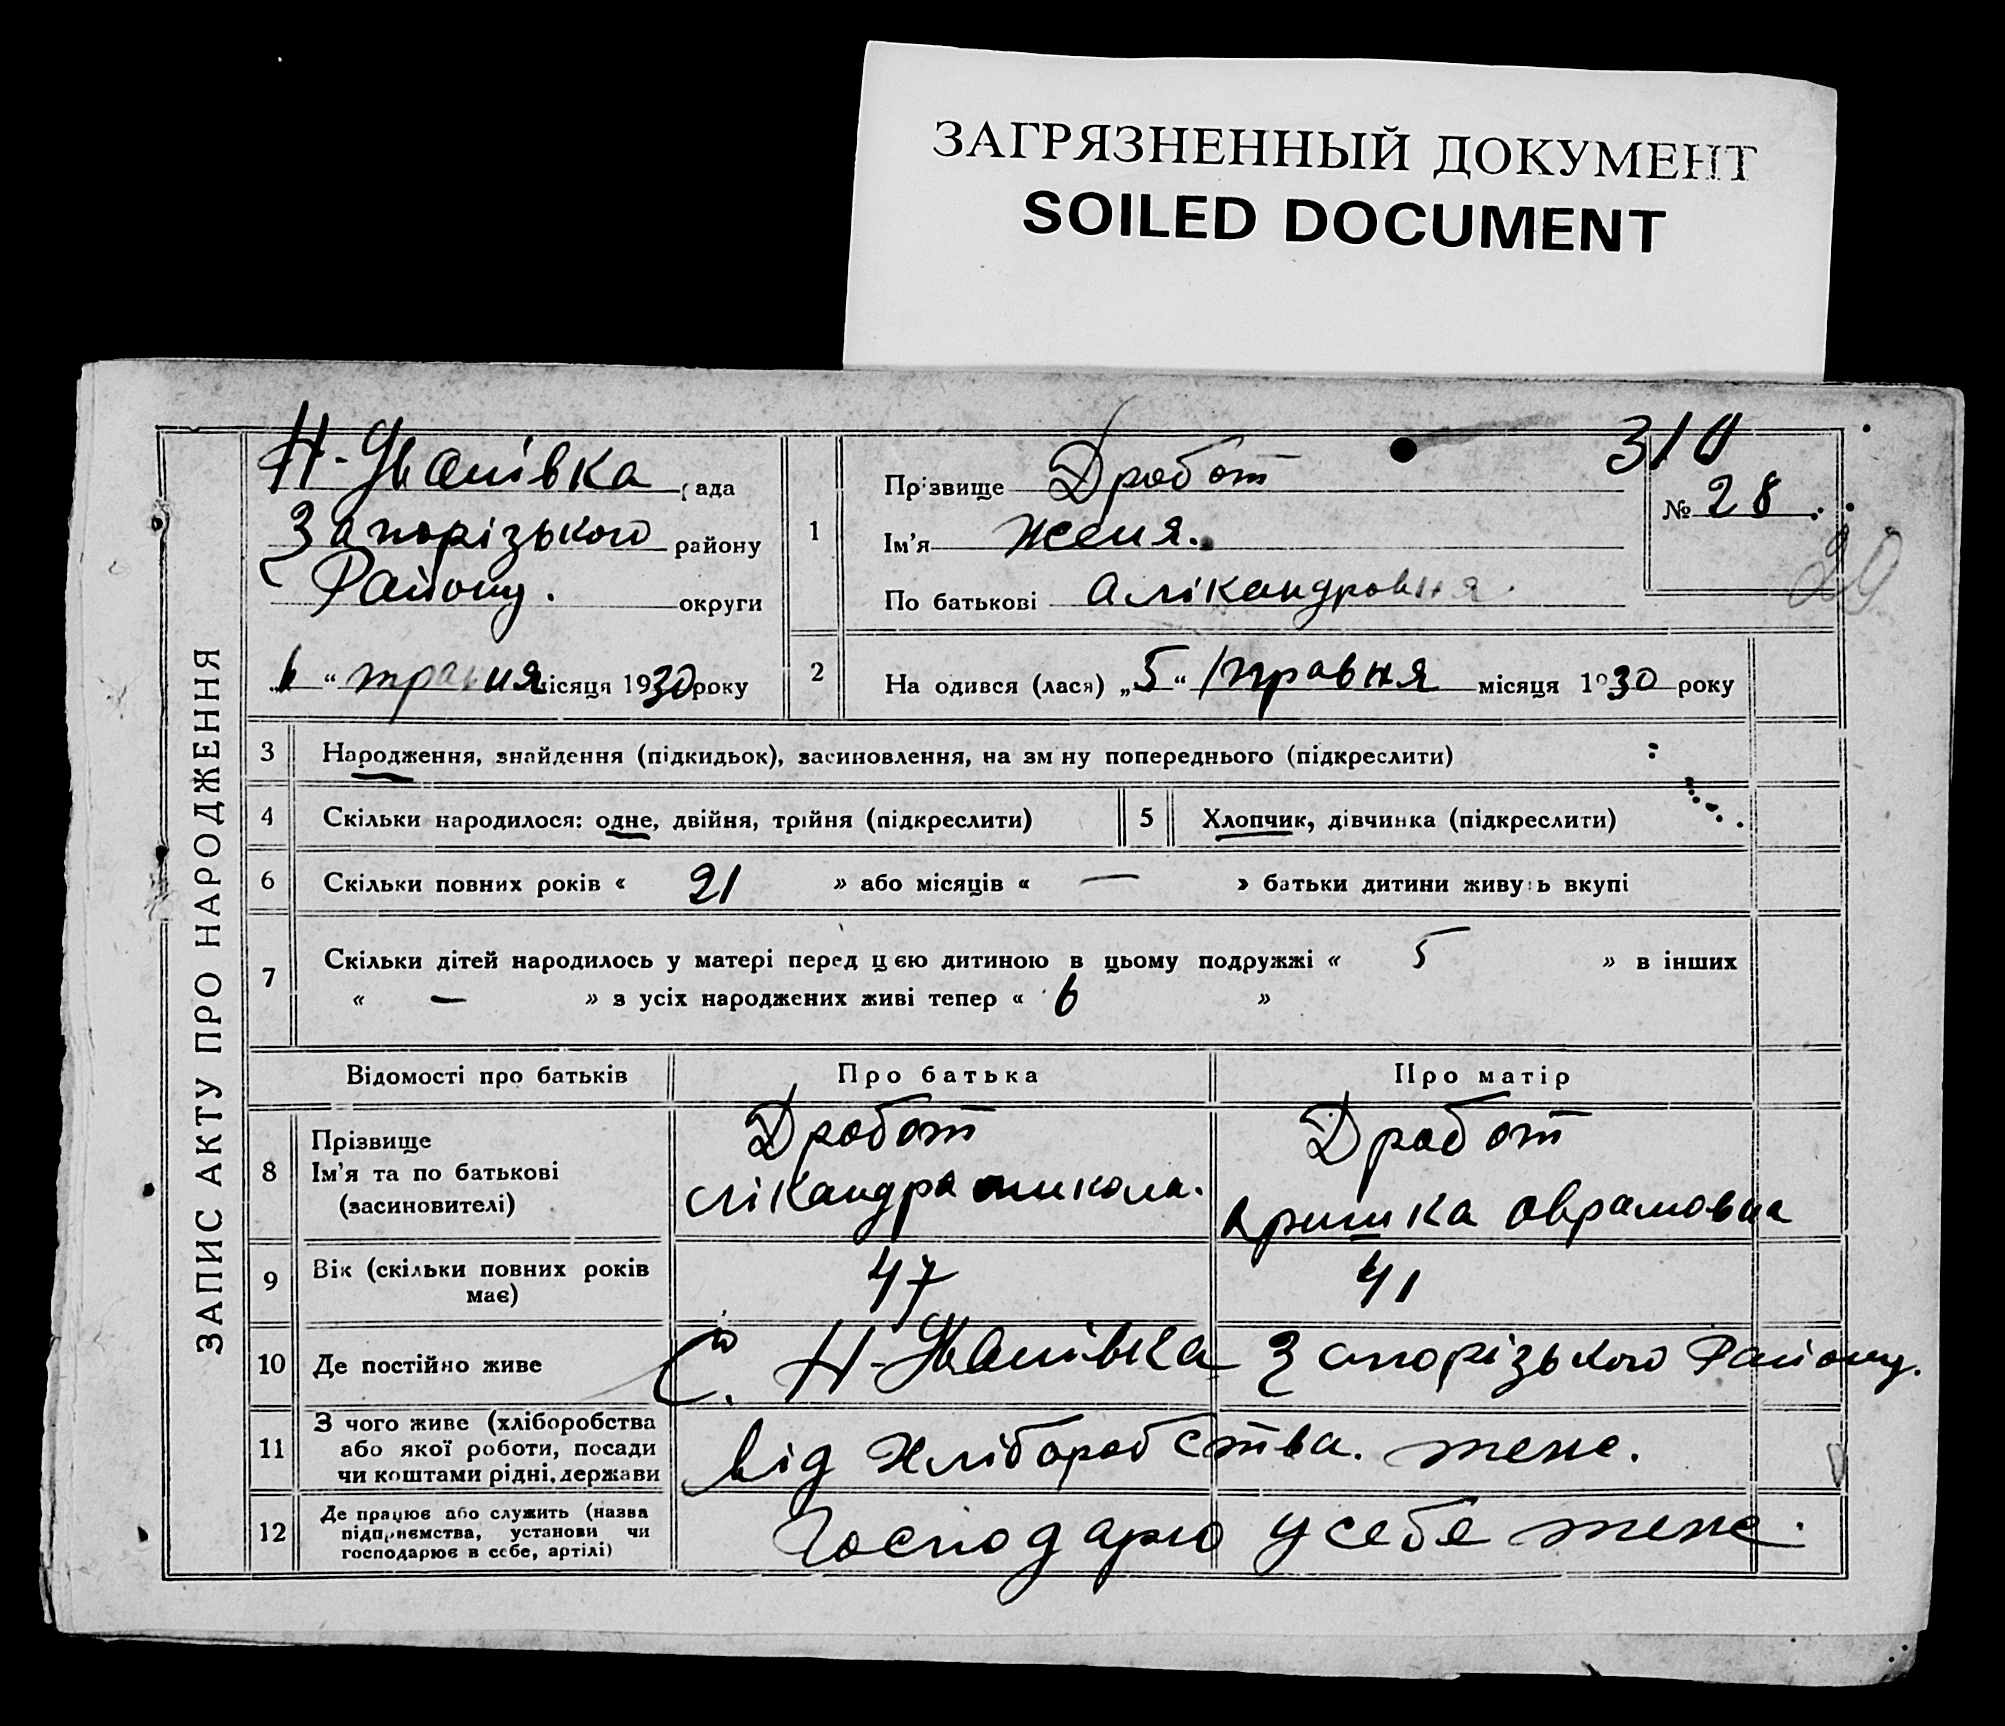 ЗАГРЯЗНЕННЫЙ ДОКУМЕНТ
SOILED DOCUMENT
310
ЗАПИС АКТУ ПРО НАРОДЖЕННЯ
Н-Іванівка рада
Запорізького району
Району. округи
6 " травня місяця 1930 року
1
Прізвище Дробот
Ім'я Женя.
По батькові Алікандровня.
№ 28
29
2 На одився (лася) „5“ травня місяця 1930 року
3 Народження, знайдення (підкидьок), засиновлення, на зм ну попереднього (підкреслити)
4 Скільки народилося: одне, двійня, трійня (підкреслити)
5 Хлопчик, дівчинка (підкреслити)
6 Скільки повних років « 21 » або місяців « — » батьки дитини живуть вкупі
7 Скільки дітей народилось у матері перед цією дитиною в цьому подружжі « 5 » в інших
« — » з усіх народжених живі тепер « 6 »
Відомості про батьків Про батька Про матір
8 Прізвище Ім'я та по батькові (засиновителі)
Дробот Дробот
Лікандра микола. Аришка Аврамовна
9 Вік (скільки повних років має) 47 41
10 Де постійно живе С. Н-Іванівка Запорізького Району.
11 З чого живе (хліборобства
або якої роботи, посади
чи коштами рідні, держави
від Хліборобства. теже.
12 Де працює або служить (назва
підприємства, установи чи
господарює в себе, артілі)
Господарю у себе теже.